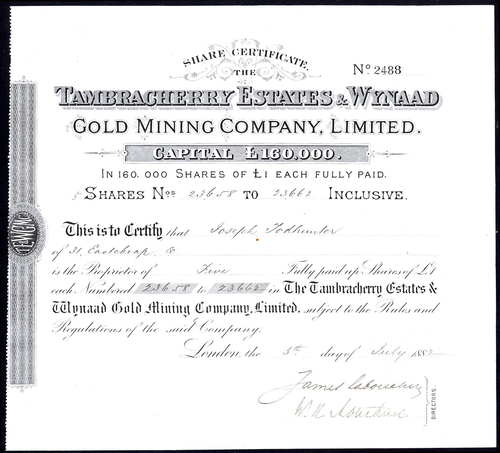 SHARE CERTIFICATE.
THE
No 2488
TAMBRACHERRY ESTATES & WYNAAD
GOLD MINING COMPANY, LIMITED.
CAPITAL £160,000.
IN 160,000 SHARES OF £1 EACH FULLY PAID.
SHARES Nos 23658 TO 23662 INCLUSIVE.
This is to Certify that Joseph Todhunter
of 31, Eastcheap
is the Proprietor of Five Fully paid up Shares of £1
each Numbered 23658 to 23662 in The Tambracherry Estates &
Wynaad Gold Mining Company, Limited, subject to the Rules and
Regulations of the said Company.
London, the 5th day of July 1882
James
W. H.
DIRECTORS